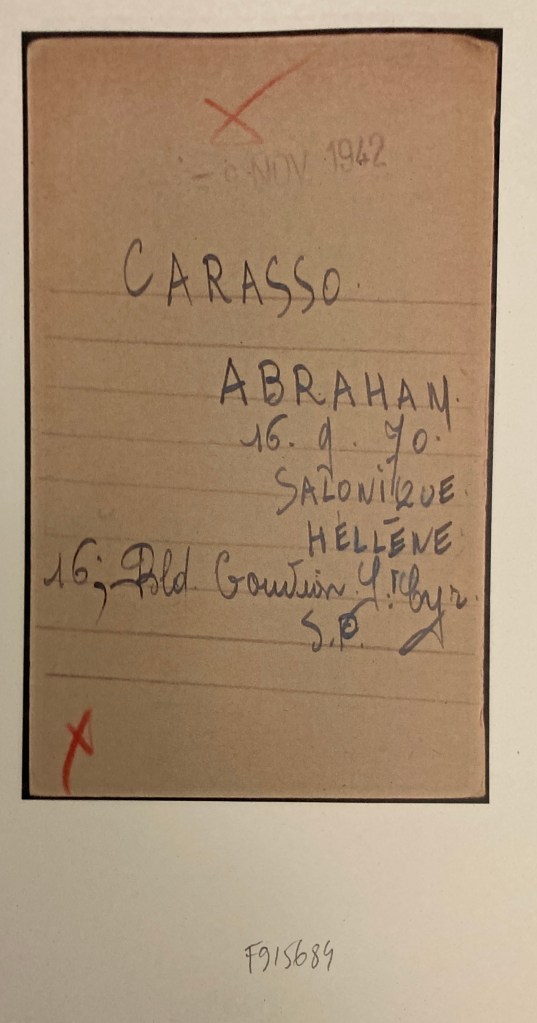 NOV. 1942
CARASSO.
ABRAHAM.
16. 9. 70.
SALONIQUE.
HELLÈNE
16; Bld. Gouvion. St. Cyr.
S.P.
F915689